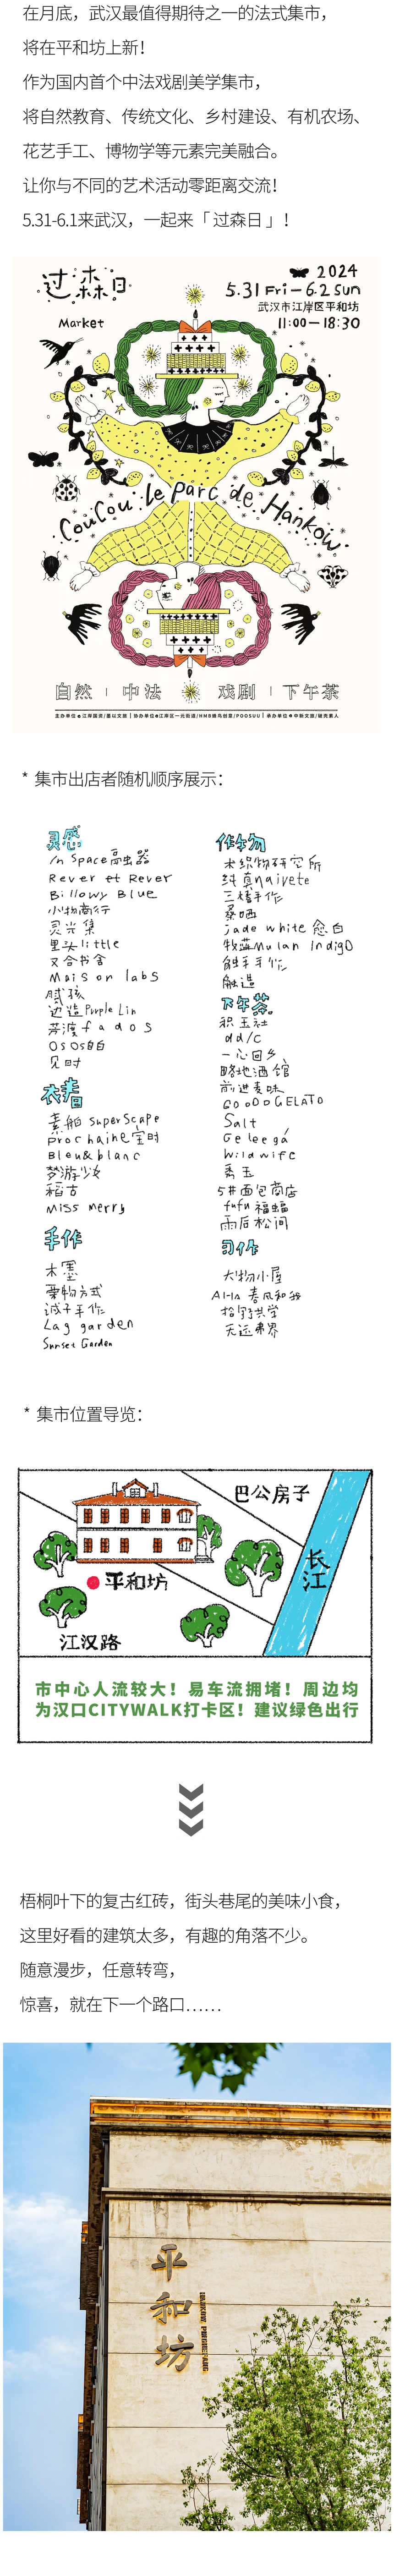 在月底，武汉最值得期待之一的法式集市，
将在平和坊上新！
作为国内首个中法戏剧美学集市，
将自然教育、传统文化、乡村建设、有机农场、
花艺手工、博物学等元素完美融合。
让你与不同的艺术活动零距离交流！
5.31-6.1来武汉，一起来「过森日」！
过森日
Market
2024
5.31 Fri—6.2 Sun
武汉市江岸区平和坊
11:00—18:30
CouCou le parc de Hankow
自然 | 中法 戏剧 | 下午茶
* 集市出店者随机顺序展示：
灵感
in Space高出器
Rever et Rever
Billowy Blue
小物商行
灵光集
里头little
又合书舍
Maison labs
腻孩
边造Purple Lin
芬渡fados
OSOS白白
见时
衣着
素舶 SuperScape
prochaine宝时
Bleu&blanc
梦游少女
稻古
miss merry
手作
木墨
栗物方式
诚子手作
Lag garden
Sunset Garden
作物
木织物研究所
纯真naivete
三楮手作
暴晒
jade white 愈白
牧蓝Mulan Indigo
触手手作
融造
下午茶
积玉社
dd/c
一心回乡
略地酒馆
前进麦味
GOODO GELATO
Salt
Geleegá
Wildwife
禹玉
5#面包商店
fufu福蝠
雨后松间
习作
大物小屋
春风和我
拾野共学
无远弗界
* 集市位置导览：
巴公房子
长江
平和坊
江汉路
市中心人流较大！易车流拥堵！周边均
为汉口CITYWALK打卡区！建议绿色出行
梧桐叶下的复古红砖，街头巷尾的美味小食，
这里好看的建筑太多，有趣的角落不少。
随意漫步，任意转弯，
惊喜，就在下一个路口……
平和坊